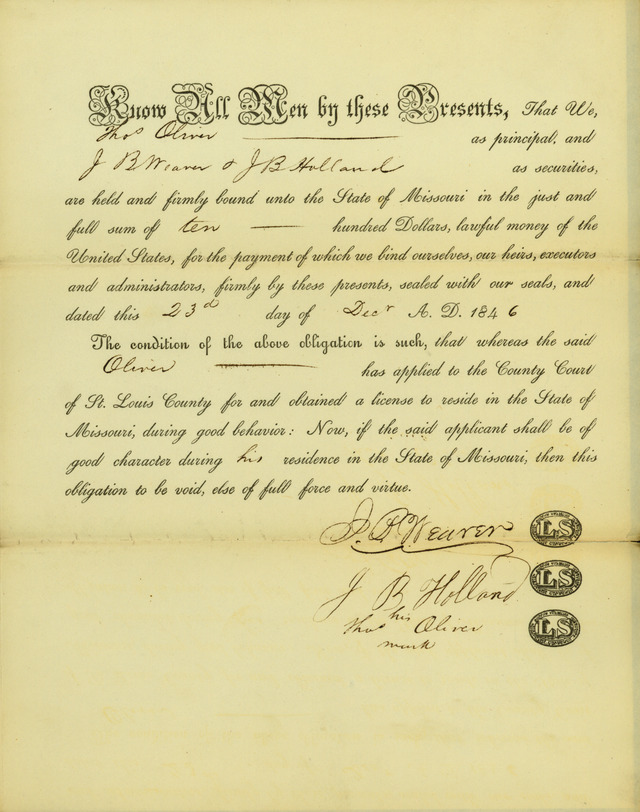 Know All Men by these Presents, That We,
Thos Oliver as principal, and
J B Weaver & J B Holland as securities,
are held and firmly bound unto the State of Missouri in the just and
full sum of ten hundred Dollars, lawful money of the
United States, for the payment of which we bind ourselves, our heirs, executors
and administrators, firmly by these presents, sealed with our seals, and
dated this 23d day of Decr A. D. 1846
The condition of the above obligation is such, that whereas the said
Oliver has applied to the County Court
of St. Louis County for and obtained a license to reside in the State of
Missouri, during good behavior: Now, if the said applicant shall be of
good character during his residence in the State of Missouri, then this
obligation to be void, else of full force and virtue.
J. B. Weaver LS
J B Holland LS
his
Thos Oliver LS
mark